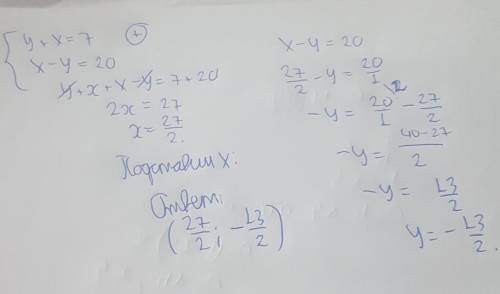 { y + x = 7 (+)
x - y = 20
y + x + x - y = 7 + 20
2x = 27
x = 27/2.
Подставим x:
Ответ:
(27/2; -13/2)
x - y = 20
27/2 - y = 20/1
-y = 20/1 \2 - 27/2
-y = 40-27/2
-y = 13/2
y = -13/2.